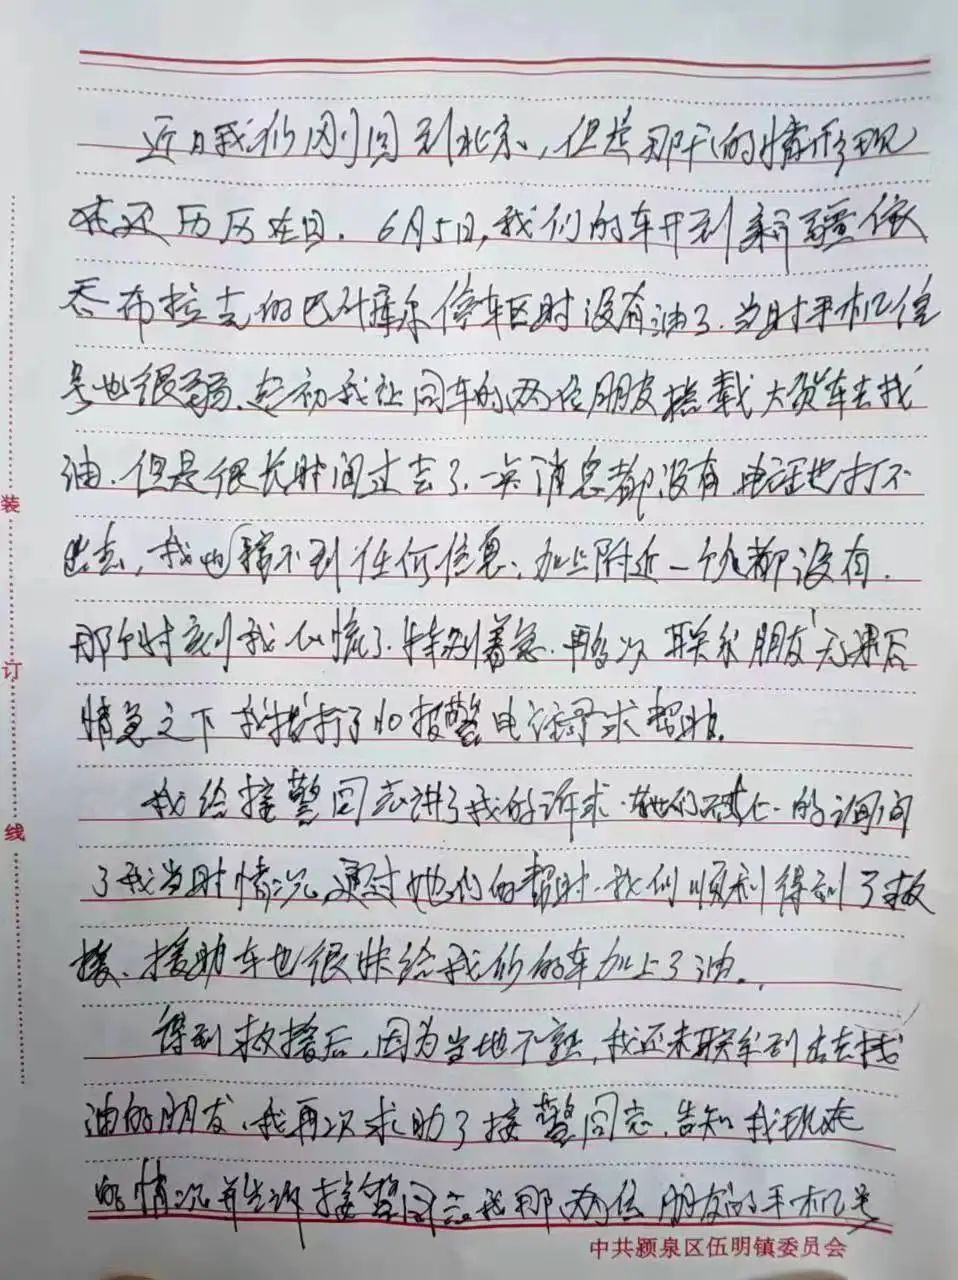 近日我们刚回到北京、但是那天的情形现
在还历历在目.6月5日,我们的车开到新疆依
吞布拉克的巴什库尔停车区时没有油了.当时手机信
号也很弱、起初我让同车的两位朋友搭载大货车去找
油.但是很长时间过去了.一点消息都没有 电话也打不
出去,我也接不到任何信息、加上附近一个人都没有.
那个时刻我心慌了.特别着急.再多次联系朋友无果后
情急之下 我拨打了110报警电话寻求帮助.
我给接警同志讲了我的诉求.她们的询问
了我当时情况,通过她们的帮助.我们顺利得到了救
援、援助车也很快给我们的车加上了油.
得到救援后,因为当地不熟,我还未联系到出去找
油的朋友、我再次求助了接警同志.告知我现在
的情况并告诉接警同志我那两位朋友的手机号
中共颍泉区伍明镇委员会
装
订
线